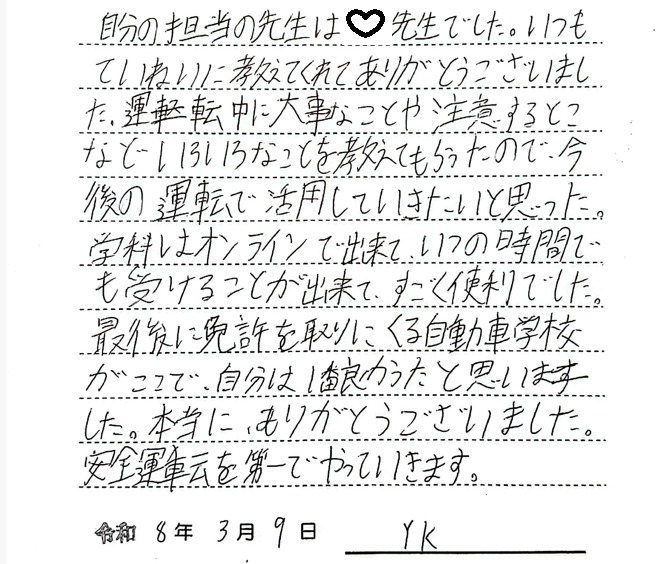 自分の担当の先生は♡先生でした。いつも
ていねいに教えてくれてありがとうございまし
た。運転中に大事なことや注意するとこ
など いろいろなことを教えてもらったので、今
後の運転で活用していきたいと思った。
学科はオンラインで出来て、いつの時間で
も受けることが出来て、すごく便利でした。
最後に免許を取りにくる自動車学校
がここで、自分は1番良かったと思います
した。本当に、ありがとうございました。
安全運転を第一でやっていきます。
令和 8年 3月 9日 YK